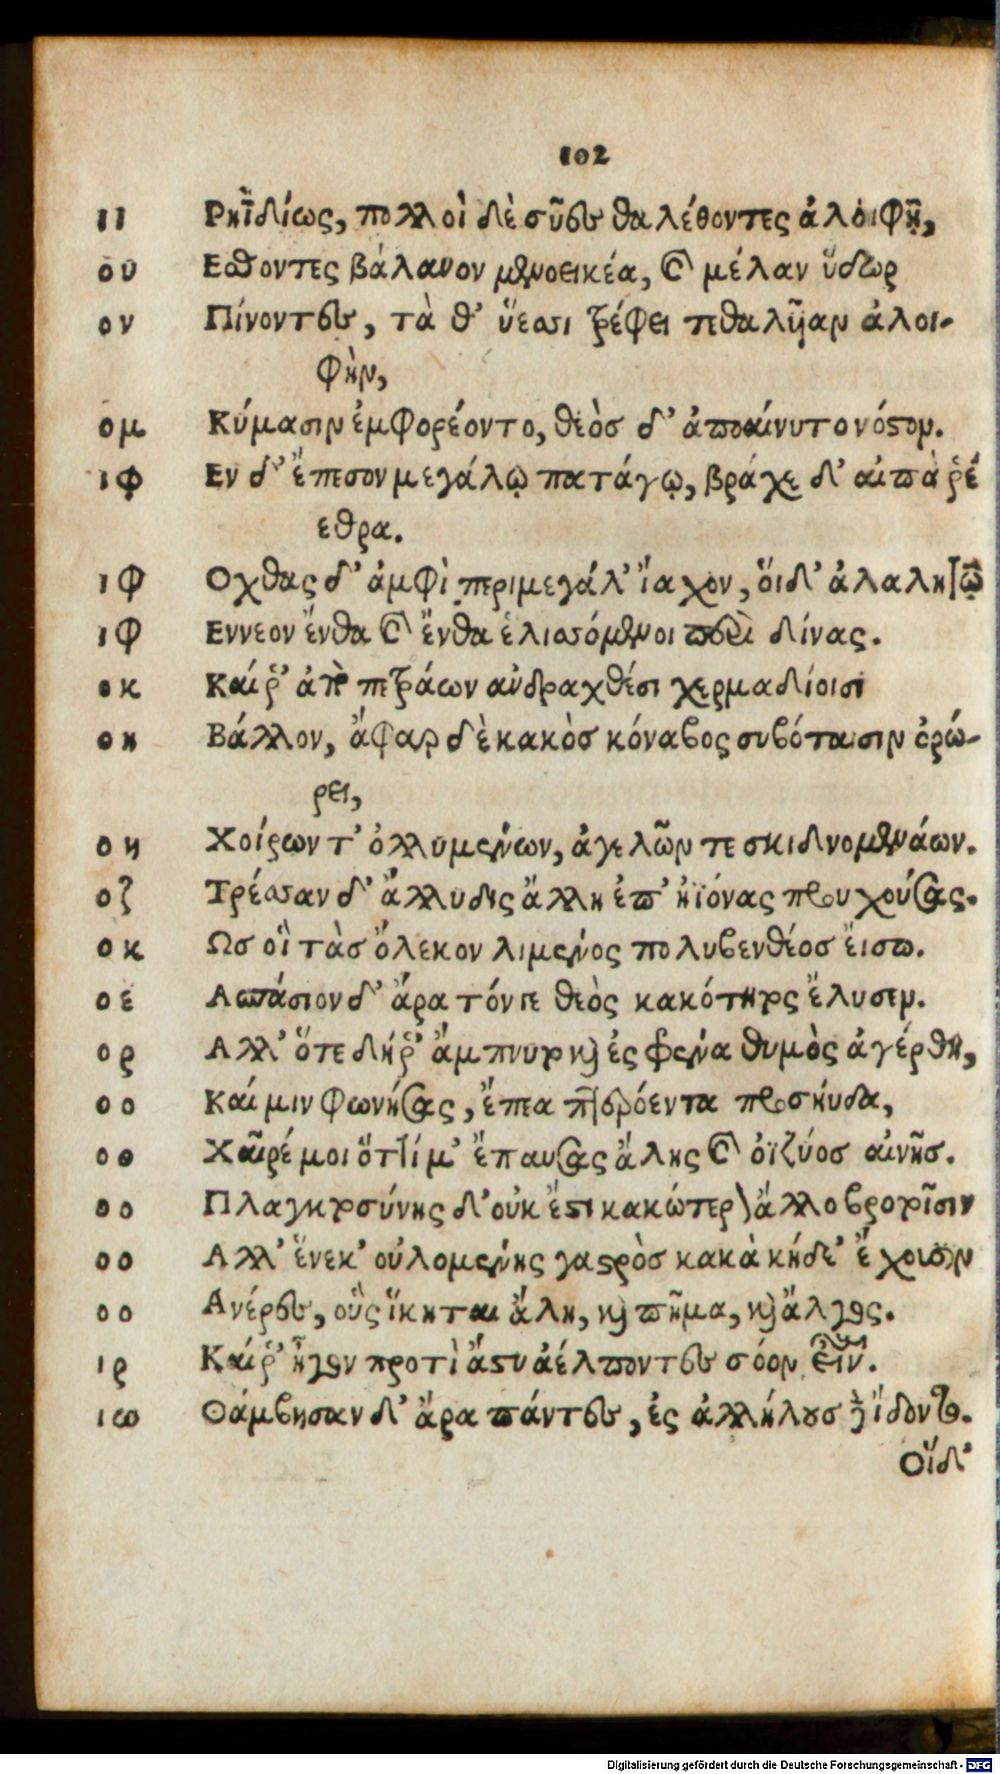 102
ιι Ρηϊδίως, πολλοὶ δὲ σύες θαλέθοντες ἀλοιφῇ,
ου Εσθοντες βάλανον μενοεικέα, καὶ μέλαν ὕδωρ
ον Πίνοντες, τὰ θ' ὕεσσι τρέφει τεθαλῦιαν ἀλοι-
φὴν,
ομ Κύμασιν ἐμφορέοντο, θεὸσ δ' ἀποαίνυτο νόστον.
ιφ Εν δ' ἔπεσον μεγάλῳ πατάγῳ, βράχε δ' αἰπὰ ῥέ
εθρα.
ιφ Οχθας δ' ἀμφὶ περιμεγάλ' ἴαχον, ὅιδ' ἀλαλητῷ
ιφ Εννεον ἔνθα καὶ ἔνθα ἑλισσόμενοι περὶ δίνας.
οκ Καί ῥ' ἀπὸ πετράων ἀνδραχθέσι χερμαδίοισι
οκ Βάλλον, ἄφαρ δὲ κακὸσ κόναβος συβόταισιν ὀρώ-
ρει,
οη Χοίρων τ' ὀλλυμένων, ἀγελῶν τε σκιδνομενάων.
οζ Τρέσσαν δ' ἄλλυδις ἄλλη ἐπ' ἠϊόνας προυχούσας.
οκ Ωσ οἳ τὰσ ὄλεκον λιμένος πολυβενθέοσ εἴσω.
οε Ασπάσιον δ' ἄρα τόνγε θεὸς κακότητος ἔλυσεν.
ορ Αλλ' ὅτε δή ῥ' ἄμπνυτο καὶ ἐς φρένα θυμὸς ἀγέρθη,
οο Καί μιν φωνήσας, ἔπεα πτερόεντα προσηύδα,
οο Χαῖρέ μοι ὅττί μ' ἔπαυσας ἄλης καὶ ὀϊζύοσ αἰνῆσ.
οο Πλαγκτοσύνης δ' οὐκ ἔστι κακώτερον ἄλλο βροτοῖσιν
οο Αλλ' ἕνεκ' οὐλομένης γαστρὸσ κακὰ κήδε' ἔχουσιν
οο Ανέρες, οὓς ἵκηται ἄλη, καὶ πῆμα, καὶ ἄλγος.
ιρ Καί ῥ' ἦγον προτὶ ἄστυ ἀέλποντες σόον εἶναι.
ιω Θάμβησαν δ' ἄρα πάντες, ἐς ἀλλήλουσ τε ἴδοντο.
Οἵδ'
Digitalisierung gefördert durch die Deutsche Forschungsgemeinschaft - DFG